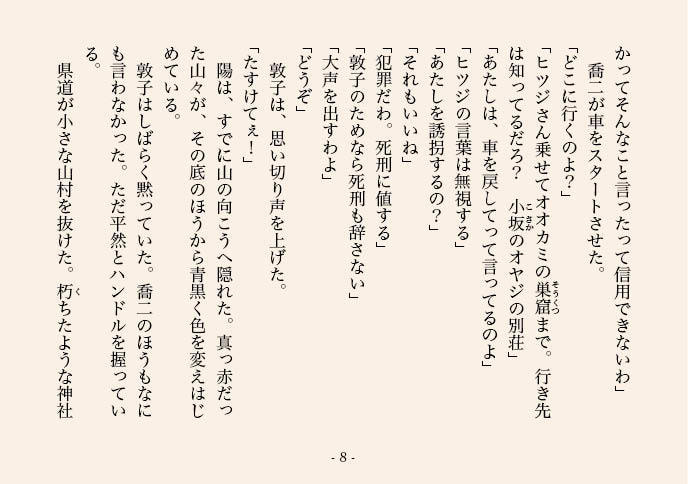 かってそんなこと言ったって信用できないわ」
　喬二が車をスタートさせた。
「どこに行くのよ？」
「ヒツジさん乗せてオオカミの巣窟まで。行き先
は知ってるだろ？　小坂のオヤジの別荘」
「あたしは、車を戻してって言ってるのよ」
「ヒツジの言葉は無視する」
「あたしを誘拐するの？」
「それもいいね」
「犯罪だわ。死刑に値する」
「敦子のためなら死刑も辞さない」
「大声を出すわよ」
「どうぞ」
　敦子は、思い切り声を上げた。
「たすけてぇ！」
　陽は、すでに山の向こうへ隠れた。真っ赤だっ
た山々が、その底のほうから青黒く色を変えはじ
めている。
　敦子はしばらく黙っていた。喬二のほうもなに
も言わなかった。ただ平然とハンドルを握ってい
る。
　県道が小さな山村を抜けた。朽ちたような神社
- 8 -